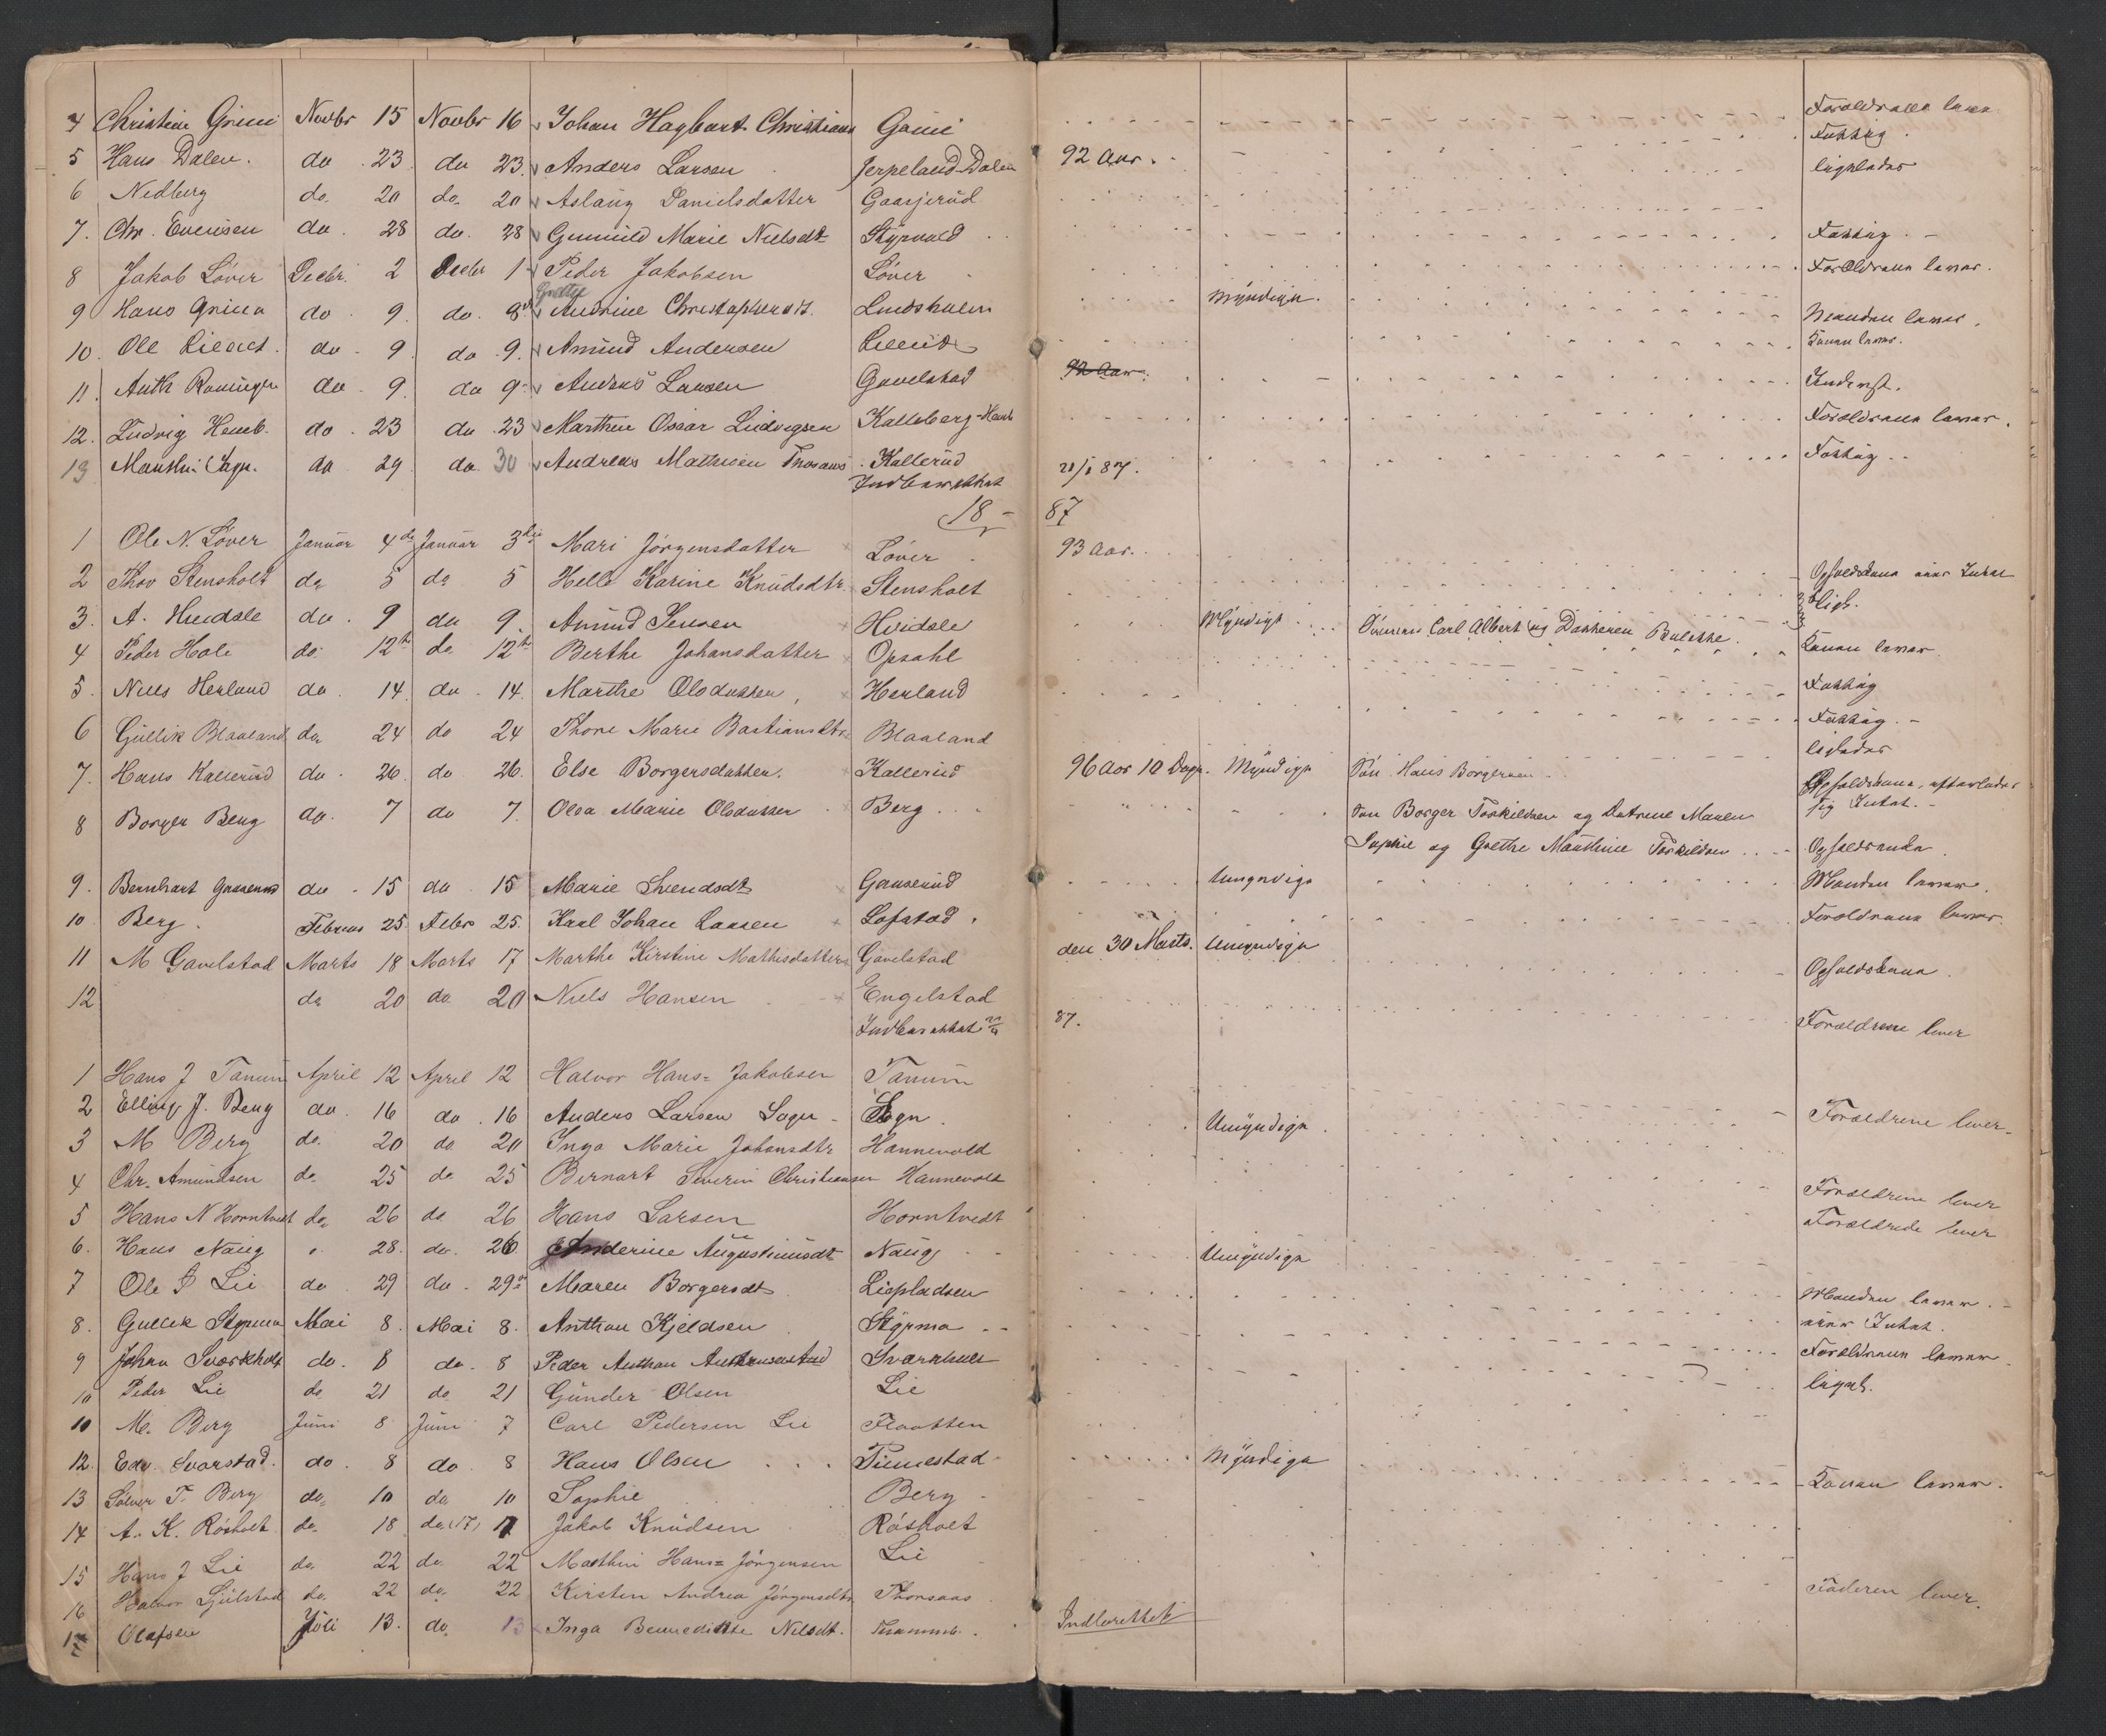 4 Christian Grini Novbr 15 Novbr 16 Johan Hagbart Christians Grini Forældrene lever
Fattig.
5 Hans Dalen. do 23 do 23. Anders Larsen Jerpeland Dalen 92 Aar. ligeledes
6 Nedberg do. 20 do. 20 Aslaug Danielsdatter Gaasjerud
7. Chr. Evensen do. 28 do. 28 Gunnild Marie Nielsdt Styrvold Fattig.
8 Jakob Löver Decbr. 2 Decbr 1 Peder Jakobsen Löver Forældrene lever.
Grethe
9 Hans Grinen do. 9. do. 8 Andrine Christophersdt. Lindsholm Myndige. Manden lever.
10. Ole Lierud. do. 9. do. 9. Amund Andersen Lierud Konen lever.
11. Anth Ramingen do. 9. do 9. Andreas Larsen Gavelstad 92 Aar. Inderst.
12. Ludvig Hemb. do. 23 do. 23 Marthin Oscar Ludvigsen Kalleberg-Hemb Forældrene lever.
13 Manthei Sage. do 29 do. 30 Andreas Mathisen Thorsaas Kallerud 21/1 87. Fattig.
Indberettet
18 - 87
1 Ole N. Löver Januar 4de Januar 3die Mari Jörgensdatter Löver 93 Aar.
2 Thov Stensholt do 5 do 5 Helle Karine Knudsdtr. Stensholt Opholdskone eier Intet
3. A. Hvidsle do. 9 do 9. Amund Jensen Hvidsle Myndige Sönnen Carl Albert og Datteren Bolette. ligl.
4 Peder Hole do. 12te do. 12te Berthe Johansdatter Opsahl Konen lever.
5. Niels Herland do. 14. do. 14. Marthe Olsdatter Herland Fattig
6 Gullik Blaaland do 24 do 24 Thore Marie Bastiansdtr Blaaland Fattig.
ligledes
7. Hans Kallerud do. 26. do. 26. Else Borgersdatter. Kallerud 96 Aar 10 Dage. Myndige Sön Hans Borgersen. Opholdskone, efterlader
sig Intet.
8 Borger Berg do. 7 do 7. Olea Marie Olsdatter Berg Sön Borger Torkildsen og Døtrene Maren
Sophie og Grethe Mauthine Torkildsen Opholdsenke
9. Bernhart Gaaserud do. 15 do. 15 Marie Svendsdt Gaaserud Umyndige Manden lever.
10 Berg. Februar 25. Febr 25. Karl Johan Larsen Lofstad. Forældrene lever.
11 M Gavelstad Marts 18 Marts 17 Marthe Kirstine Mathisdatter Gavelstad den 30 Marts. Umyndige Opholdskone.
12 do 20 do. 20 Niels Hansen Engelstad
Indberettet 87. Forældrene lever
1 Hans J Tanum April 12 April 12 Halvor Hans= Jakobsen Tanum
2 Elling J. Berg do. 16 do. 16 Anders Larsen Sogn. Sogn. Forældrene lever.
3 M Berg do. 20 do 20 Inga Marie Johansdtr Hannevold Umyndige.
4 Chr. Amundsen do. 25 do. 25 Bernart Severin Christiansen Hannevold Forældrene lever
5 Hans N Horntvedt do. 26 do 26 Hans Larsen Horntvedt Forældrede lever
6. Hans Naug 28. do. 26 Anderine Augustinusdt Naug Umyndige
7 Ole P Lie do 29 do. 29. Maren Borgersdt Liepladsen Manden lever.
8. Gullik Styrmo Mai 8. Mai 8. Anthon Kjeldsen Styrmo eier Intet.
9 Johan Svartholt do. 8 do. 8 Peder Anthon Forældrene lever.
10 Peder Lie do 21 do 21 Gunder Olsen Lie ligel.
10 M. Berg Juni 8 Juni 7 Carl Pedersen Lie Flaatten
12. Edv. Svarstad. do. 8 do. 8 Hans Olsen Tinnestad Myndige Konen lever.
13 Sölver T. Berg do. 10 do 10 Sophie Berg
14 A. K. Rösholt do. 18 do (17) 17 Jakob Knudsen Rösholt
15 Hans J Lie do. 22 do. 22 Marthin Hans= Jörgensen Lie
16 Halvor Gjelstad do. 22 do. 22 Kirsten Andrea Jörgensdtr Thorsaas Faderen lever.
17 Olafsen Juli 13. do. 13 Inga Bennedikte Nilsdt. Indberettet